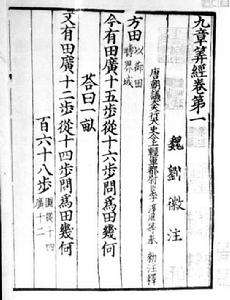 九章筭經卷第一
魏劉徽注
唐朝議大夫行太史令上輕車都尉臣李淳風等奉勑注釋
方田以御田疇界域
今有田廣十五步從十六步問爲田幾何
荅曰一畝
又有田廣十二步從十四步問爲田幾何
百六十八步圖從十四廣十二